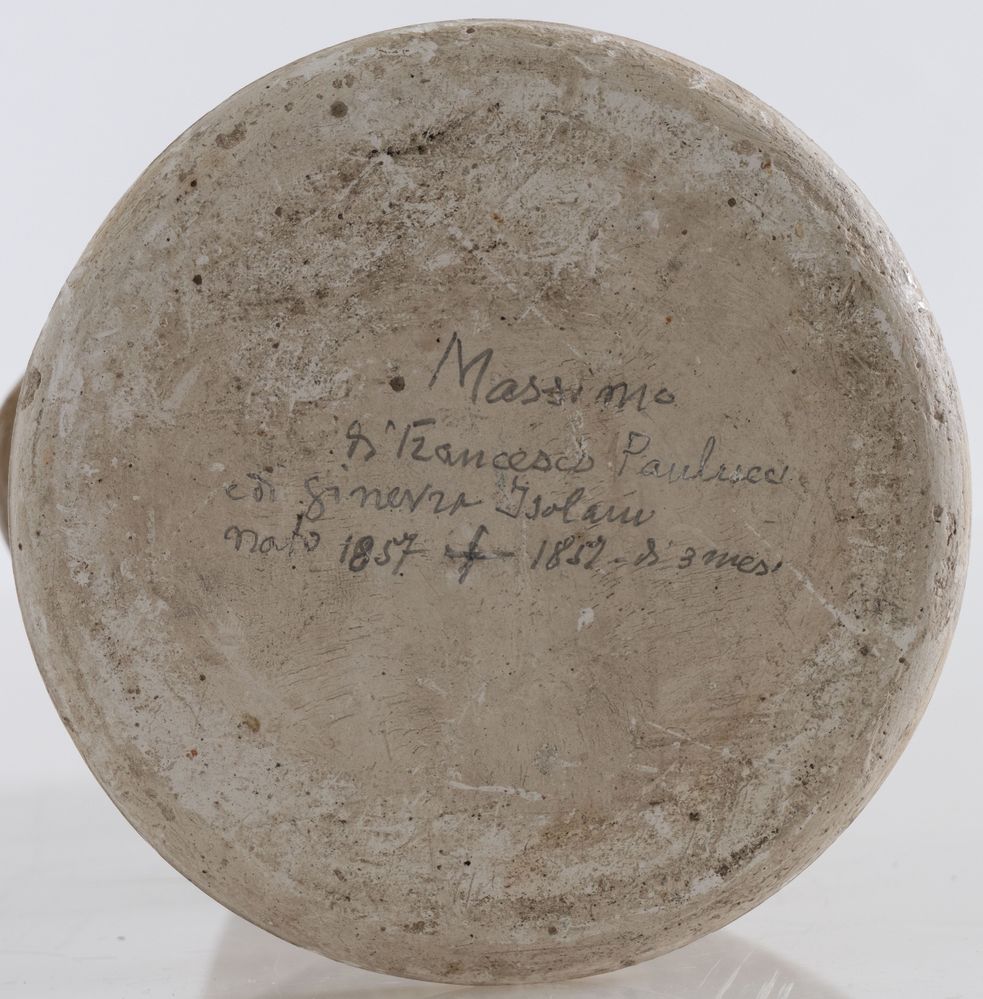 Massimo
di Francesco Paulucci
e di Ginevra Isolani
nato 1857 † 1857 - di 3 mesi